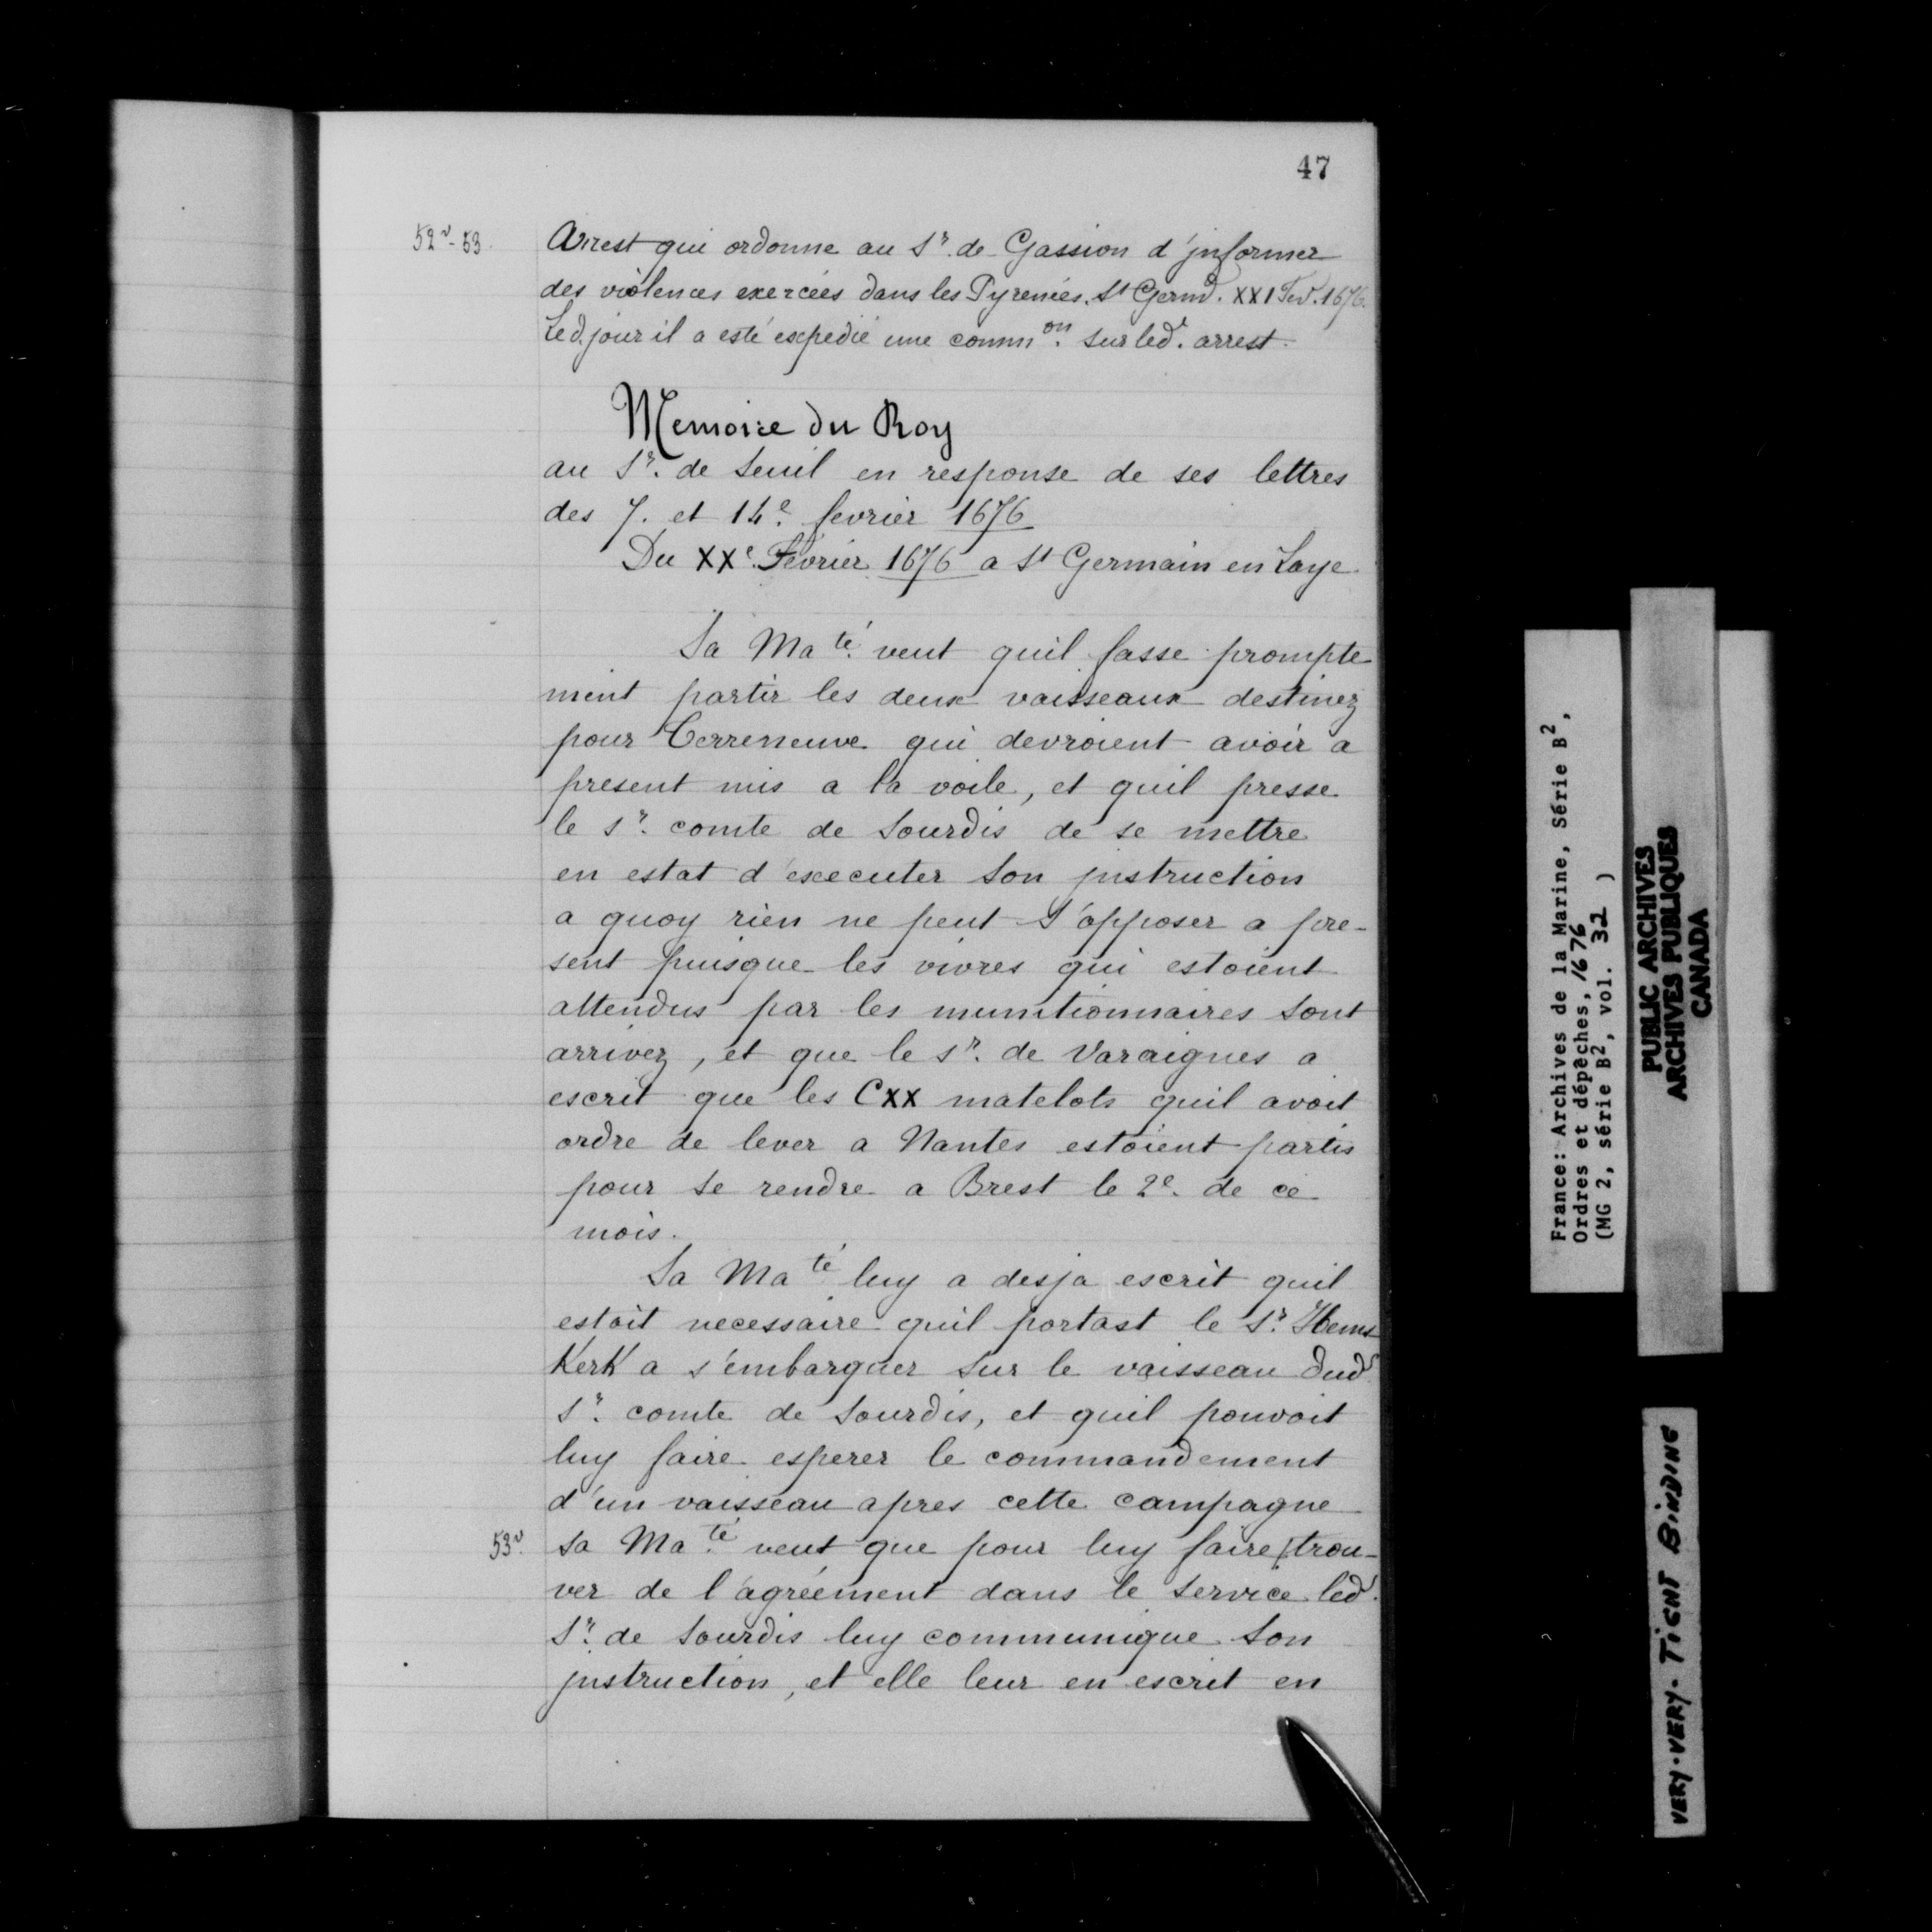 47
52v-53. Arrest qui ordonne au Sr. de Gassion d'jnformer
des violences exercées dans les Pyrenées. St Germd. XXI Fev. 1676.
Led. jour il a esté expedié une common. sur led. arrest.
Memoire du Roy
au Sr. de Seuil en response de ses lettres
des 7. et 14e. fevrier 1676
Du XXe. Fevrier 1676 a St Germain en Laye.
Sa Maté. veut quil fasse prompte
ment partir les deux vaisseaux destinez
pour Terreneuve qui devroient avoir a
present mis a la voile, et quil presse
le Sr. comte de Sourdis de se mettre
en estat d'executer son jnstruction
a quoy rien ne peut s'opposer a pre-
sent puisque les vivres qui estoient
attendus par les munitionnaires sont
arrivez, et que le Sr. de Varaignes a
escrit que les CXX matelots quil avoit
ordre de lever a Nantes estoient partis
pour se rendre a Brest le 2e. de ce
mois.
Sa Maté luy a desja escrit quil
estoit necessaire quil portast le Sr. Hems
Kerk a s'embarquer sur le vaisseau dud.
Sr. comte de Sourdis, et quil pouvoit
luy faire esperer le commandement
d'un vaisseau apres cette campagne
53v. Sa Maté. veut que pour luy faire trou-
ver de l'agréement dans le service led.
Sr. de Sourdis luy communique son
jnstruction, et elle leur en escrit en
France: Archives de la Marine, Série B2,
Ordres et dépêches, 1676
(MG 2, série B2, vol. 32 )
PUBLIC ARCHIVES
ARCHIVES PUBLIQUES
CANADA
VERY-VERY-TIGHT BINDING